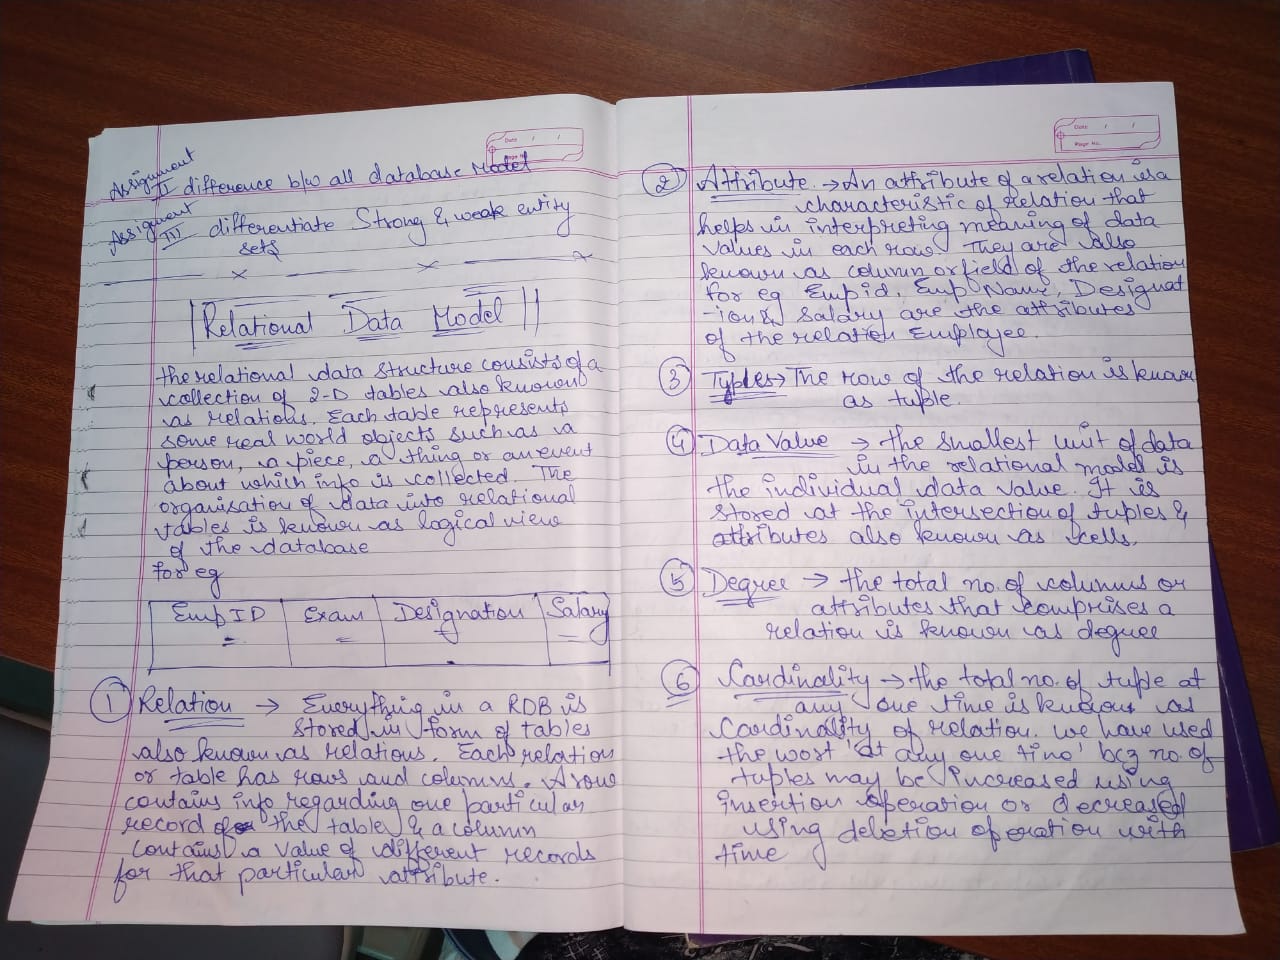 Assignment
II difference b/w all database Model
Assigment
III differentiate Strong & weak entity
sets
Date / /
Page No.
Relational Data Model
the relational data structure consists of a
collection of 2-D tables also known
as relations. Each table represents
some real world objects such as a
person, a piece, a thing or an event
about which info is collected. The
organisation of data into relational
tables is known as logical view
of the database
for eg
EmpID Exam Designation Salary
1 Relation → Everything in a RDB is
stored in form of tables
also known as relations. Each relation
or table has rows and columns. A row
contains info regarding one particular
record of the table & a column
contains a value of different records
for that particular attribute.
Date / /
Page No.
2 Attribute. → An attribute of a relation is a
characteristic of relation that
helps in interpreting meaning of data
values in each row. They are also
known as column or field of the relation
for eg Emp id, Emp Name, Designat
-ion & Salary are the attributes
of the relation Employee.
3 Tyles → The row of the relation is known
as tuple.
4 Data Value → the smallest unit of data
in the relational model is
the individual data value. It is
stored at the intersection of tuples &
attributes also known as cells.
5 Degree → the total no. of columns or
attributes that comprises a
relation is known as degree
6 Cardinality → the total no. of tuple at
any one time is known as
Cardinality of relation. we have used
the worst 'at any one time' bcz no. of
tuples may be increased using
insertion operation or decreased
using deletion operation with
time